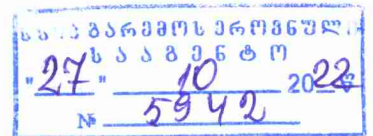 გარემოს ეროვნული
სააგენტო
"27" 10 2022
№ 5942